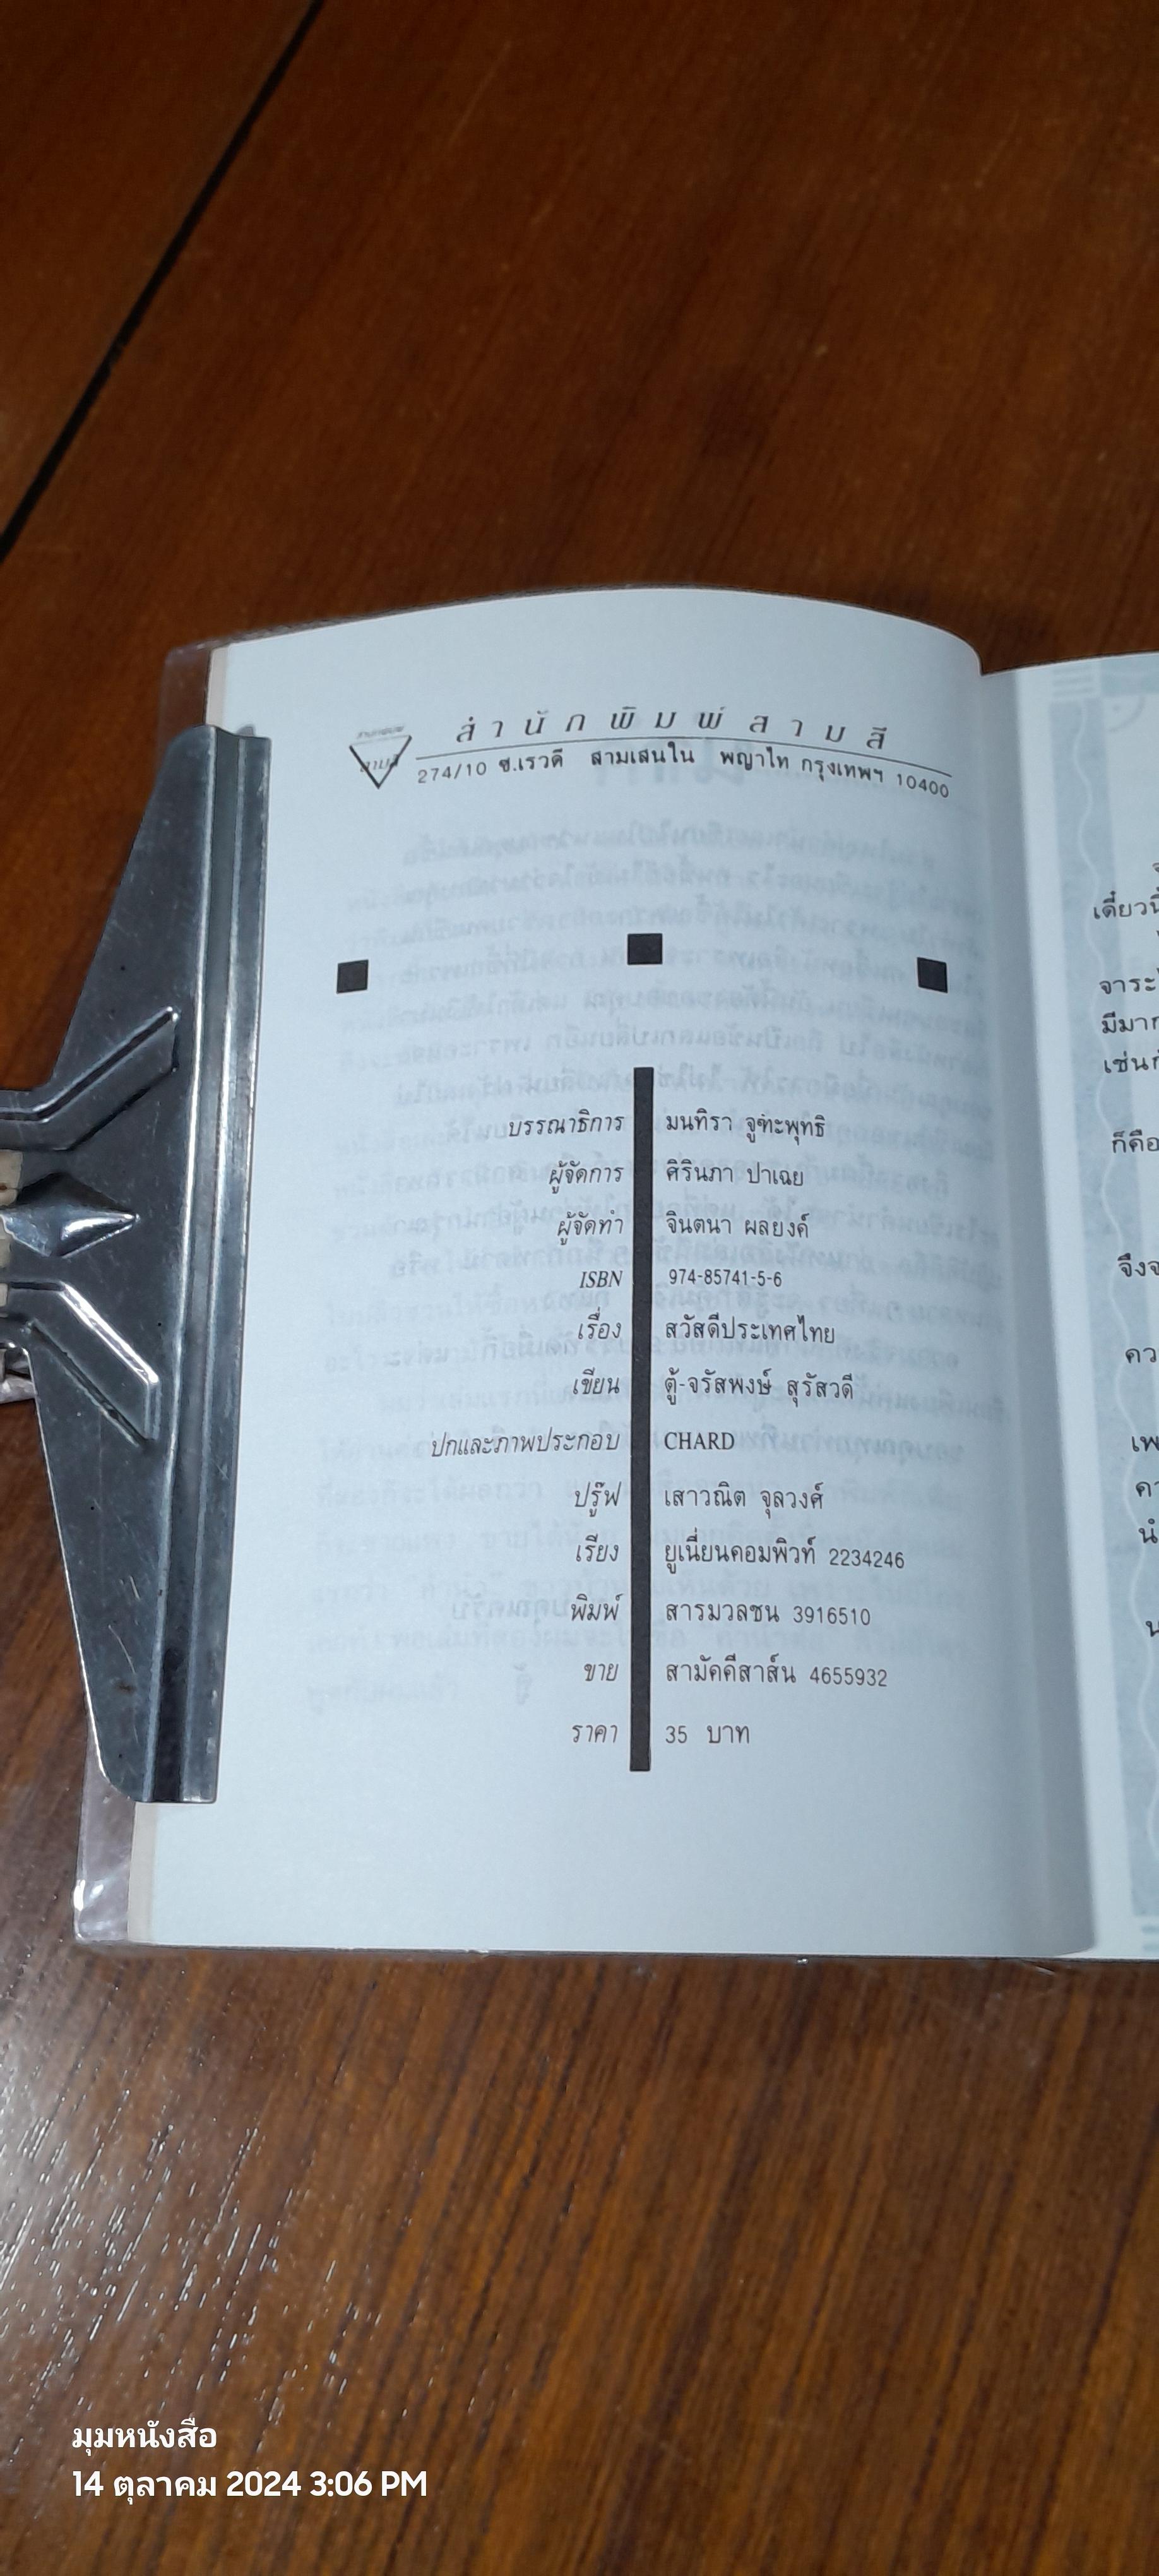 สำนักพิมพ์สามสี
274/10 ซ.เรวดี สามเสนใน พญาไท กรุงเทพฯ 10400
บรรณาธิการ มนทิรา จูฑะพุทธิ
ผู้จัดการ ศิรินภา ปาเฉย
ผู้จัดทำ จินตนา ผลยงค์
ISBN 974-85741-5-6
เรื่อง สวัสดีประเทศไทย
เขียน ตู้-จรัสพงษ์ สุรัสวดี
ปกและภาพประกอบ CHARD
ปรู๊ฟ เสาวณิต จุลวงศ์
เรียง ยูเนี่ยนคอมพิวท์ 2234246
พิมพ์ สารมวลชน 3916510
ขาย สามัคคีสาส์น 4655932
ราคา 35 บาท
เดี๋ยวนี้
มีมาก
ก็คือ
มุมหนังสือ
14 ตุลาคม 2024 3:06 PM